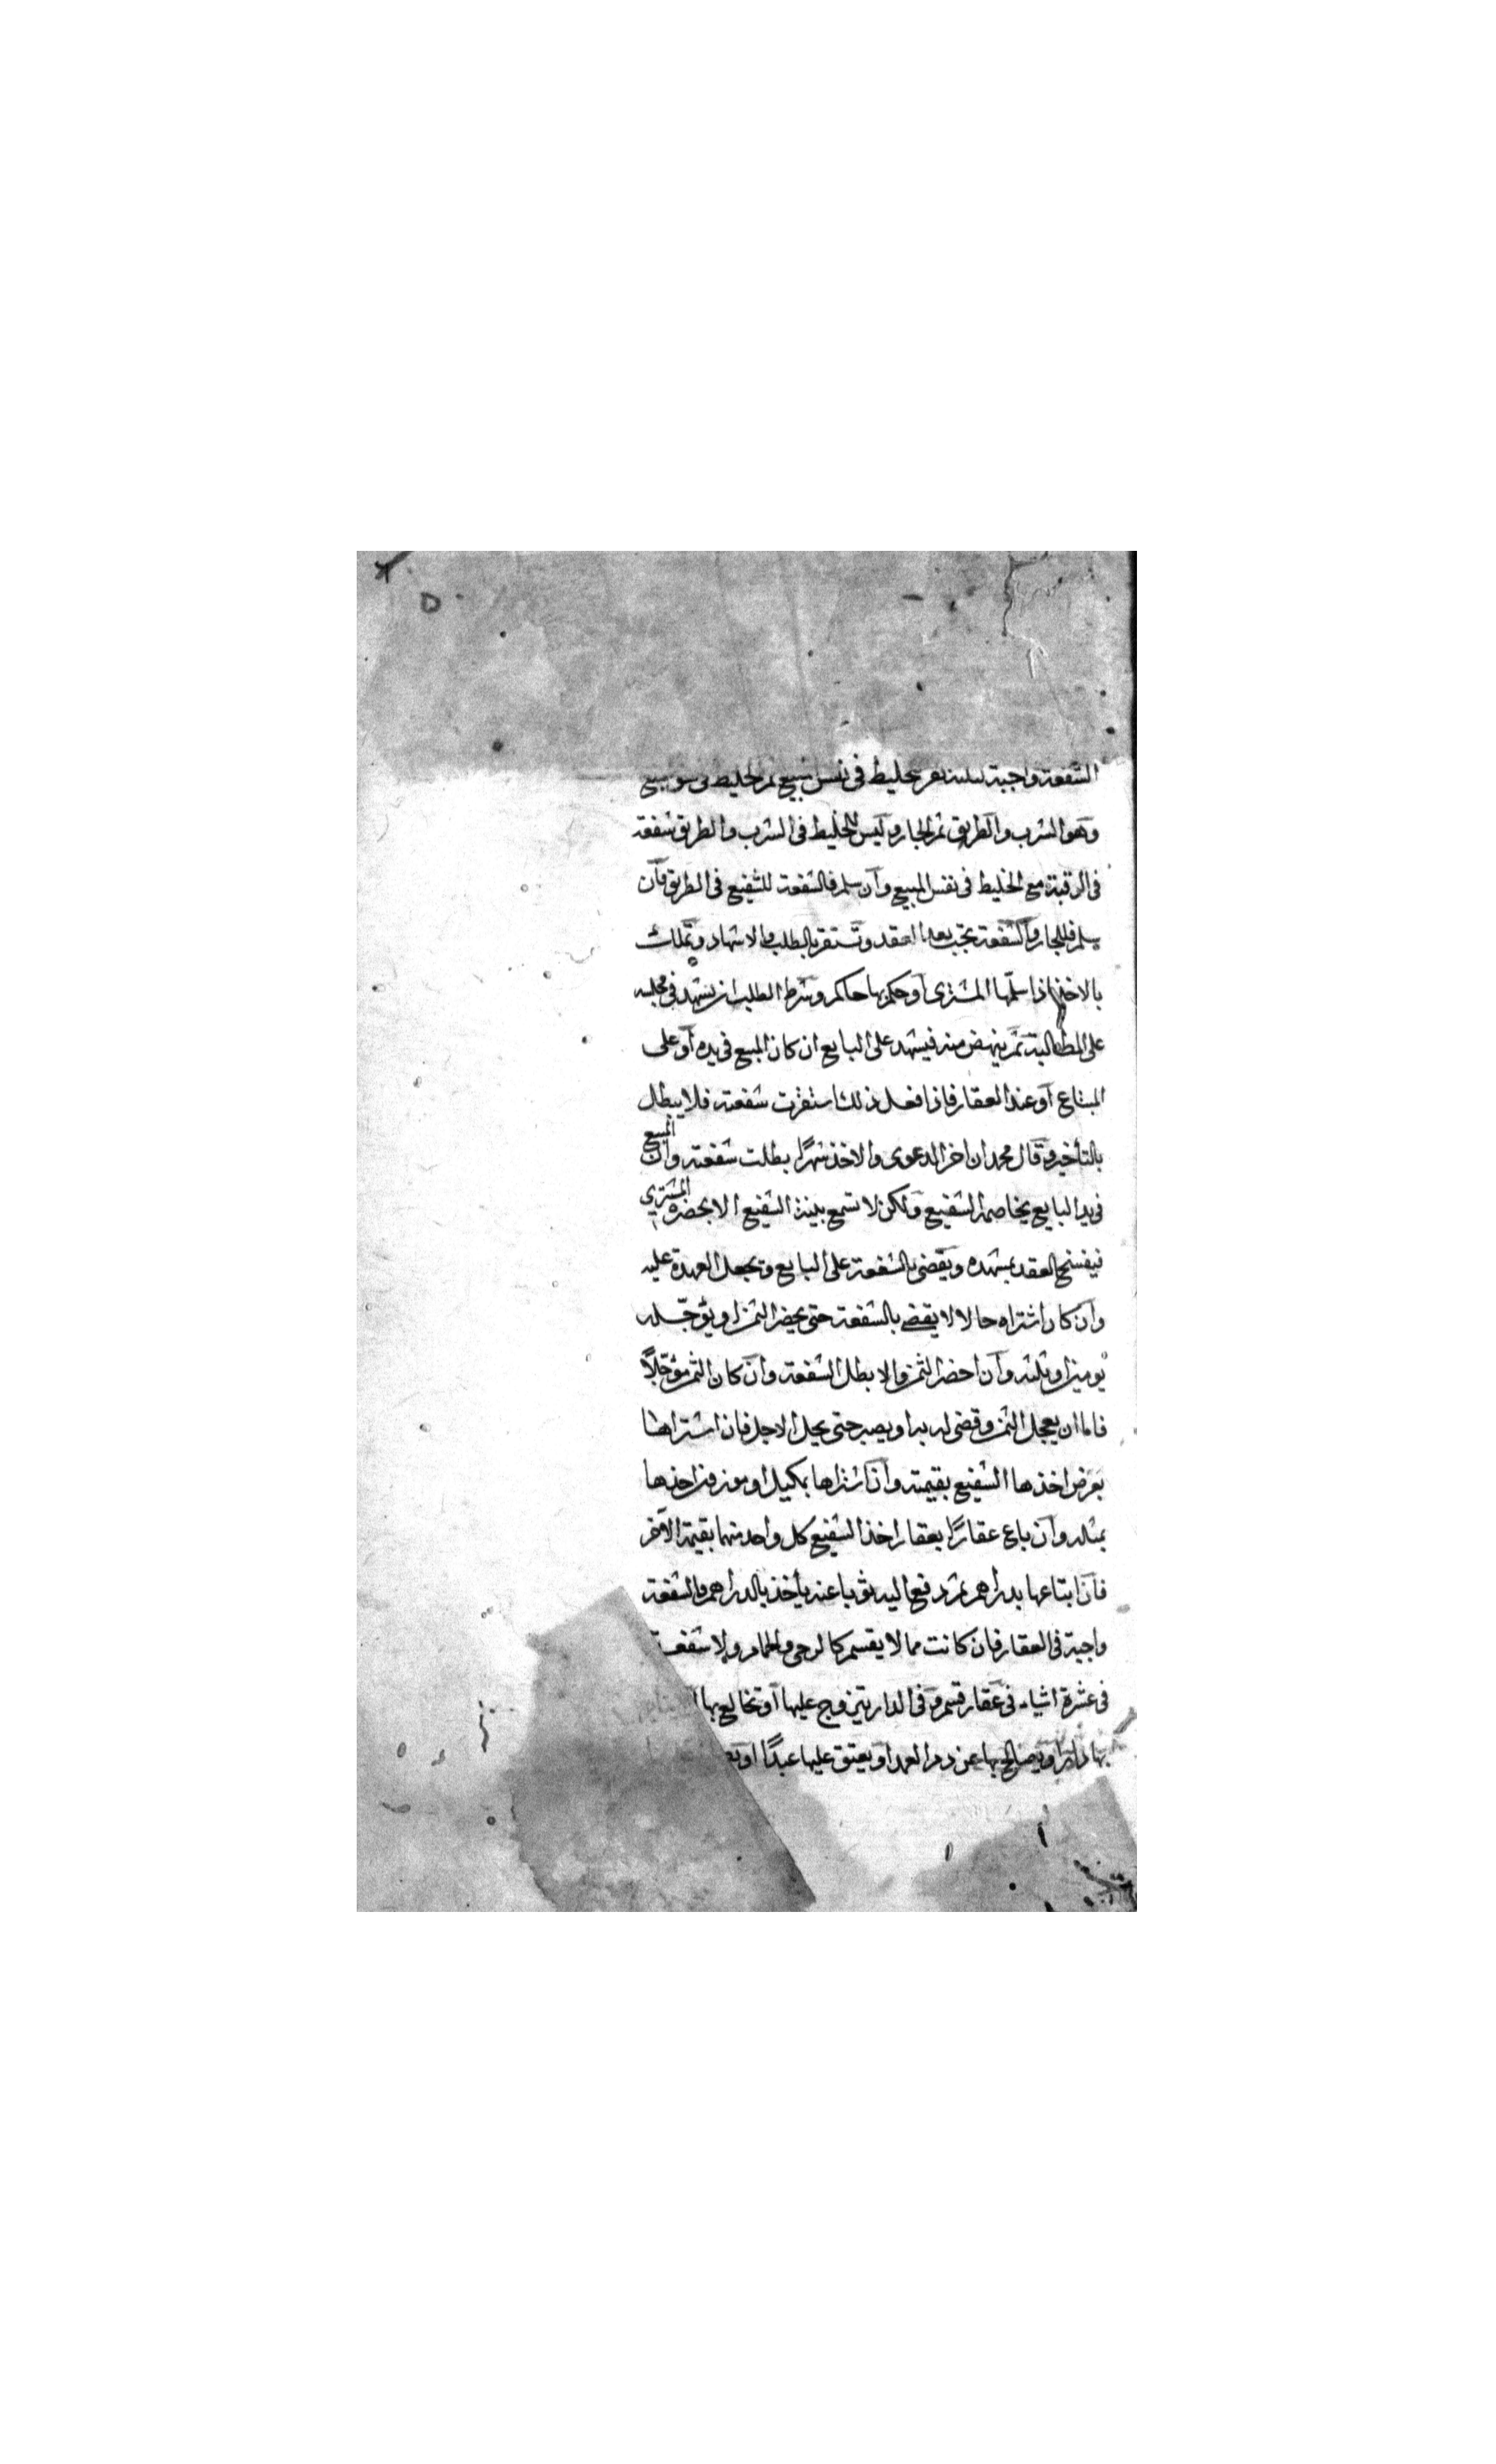 الشفعة واجبة للخليط في نفس المبيع ثم للخليط في حق المبيع
وهو الشرب والطريق ثم للجار وليس للخليط في الشرب والطريق شفعة
في الرقبة مع الخليط في نفس المبيع وان سلم فالشفعة للشفيع في الطريق فان
سلم فللجار والشفعة تجب بعد العقد وتستقر بالطلب والاشهاد وتملك
بالاخذ اذا سلمها المشترى او حكم بها حاكم وشرط الطلب ان يشهد في مجلسه
على المطالبة ثم ينهض منه فيشهد على البايع ان كان المبيع في يده او على
المبتاع او عند العقار فاذا فعل ذلك استقرت شفعته فلا يبطل
بالتأخير وقال محمد ان اخر الدعوى والاخذ شهرًا بطلت شفعته وان المبيع
في يد البايع يخاصمه الشفيع ولكن لا تسمع بينة الشفيع الا بحضرة المشترى
فيفسخ العقد بمشهده ويقضى بالشفعة على البايع وتجعل العهدة عليه
وان كان اشتراه حالا لا يقضى بالشفعة حتى يحضر الثمن او يؤجّله
يومين او ثلثة وان احضر الثمن والا بطل الشفعة وان كان الثمن مؤجّلاً
فاما ان يعجل الثمن وقضى له بها ويصبر حتى يحل الاجل فان اشتراها
بعرض اخذها الشفيع بقيمته وان اشتراها بمكيل او موزون اخذها
بمثله وان باع عقارًا بعقار اخذ الشفيع كل واحد منهما بقيمة الآخر
فان ابتاعها بدراهم ثم دفع اليه ثوبا عنه يأخذ بالدراهم والشفعة
واجبة في العقار فان كانت مما لا يقسم كالرحى والحمام ولا شفعة
في عشرة اشياء في عقار قسم وفي الدار يتزوج عليها او تخالع بها
بها دارا او يصالح بها عن دم العمد او يعتق عليها عبدًا او